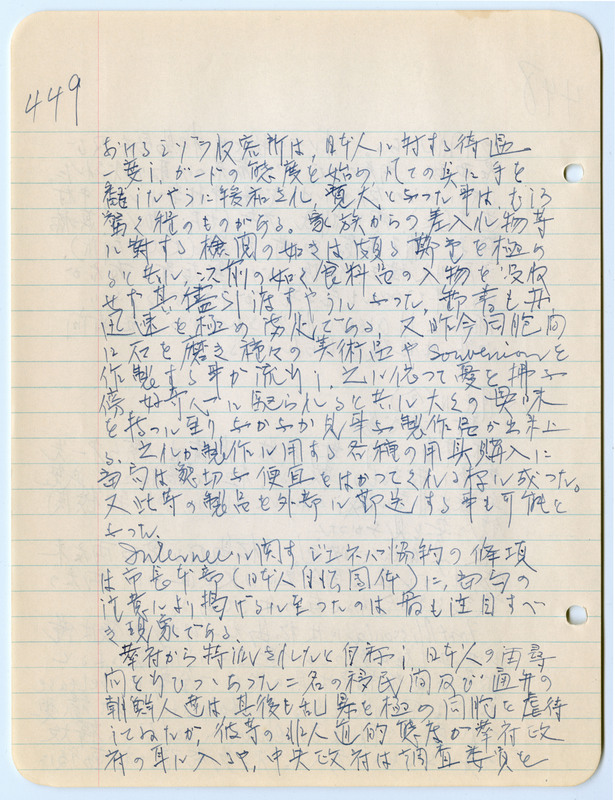 449
おけるミゾラ収容所は、日本人に対する待遇
一変し、ガードの態度を始め凡ての具に手を
翻したやうに緩和され、寛大となった事は、むしろ
驚く程のものがある。家族からの差入れ物等
に対する検閲の如きは頗る簡単を極め
ると共に、次例の如く食料品の入物を没収
せや其儘引渡すやうになった。郵着も亦
迅速を極め出した。又昨今同胞間
に石を磨き種々の美術品やsouvenirを
作製する事が流行し、之に依って憂を拂ふ
傍好奇心に駆られると共に大なの興味
を持つに至りなかなか見事な製作品が出来上
る。之れが製作に用する各種の用具購入に
当局は懇切な便宜をはかってくれる様に成った。
又此等の製品を外部に郵送する事も可能と
なった。
Interneeに関すジュネバ協約の條項
は市長本部(日本人自治団体)に、当局の
注意により掲げるに至ったのは最も注目すべ
き現象である。
華府から特派されたと自称し日本人の再尋
問を行ひつつあった二名の移民官及び通弁の
朝鮮人達は、其後も乱暴を極め同胞を虐待
してゐたが、彼等の非人道的態度が華府政
府の耳に入るや、中央政府は調査委員を